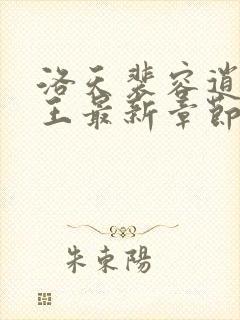 洛天裴容逍
王最新章節
朱東陽